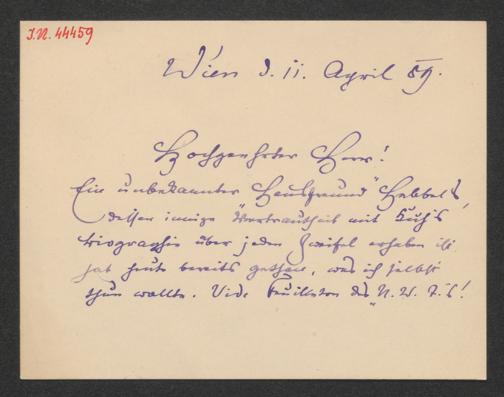 I.N. 44459
Wien d. 11. April 89.
Hochgeehrter Herr!
Ein unbekannter "Hausfreund" Hebbel's,
dessen innige Vertrautheit mit Kuh's
Biographie über jeden Zweifel erhaben ist
hat heute bereits gethan, was ich selbst
thun wollte. Vide Feuilleton des "N. W. T."'s!